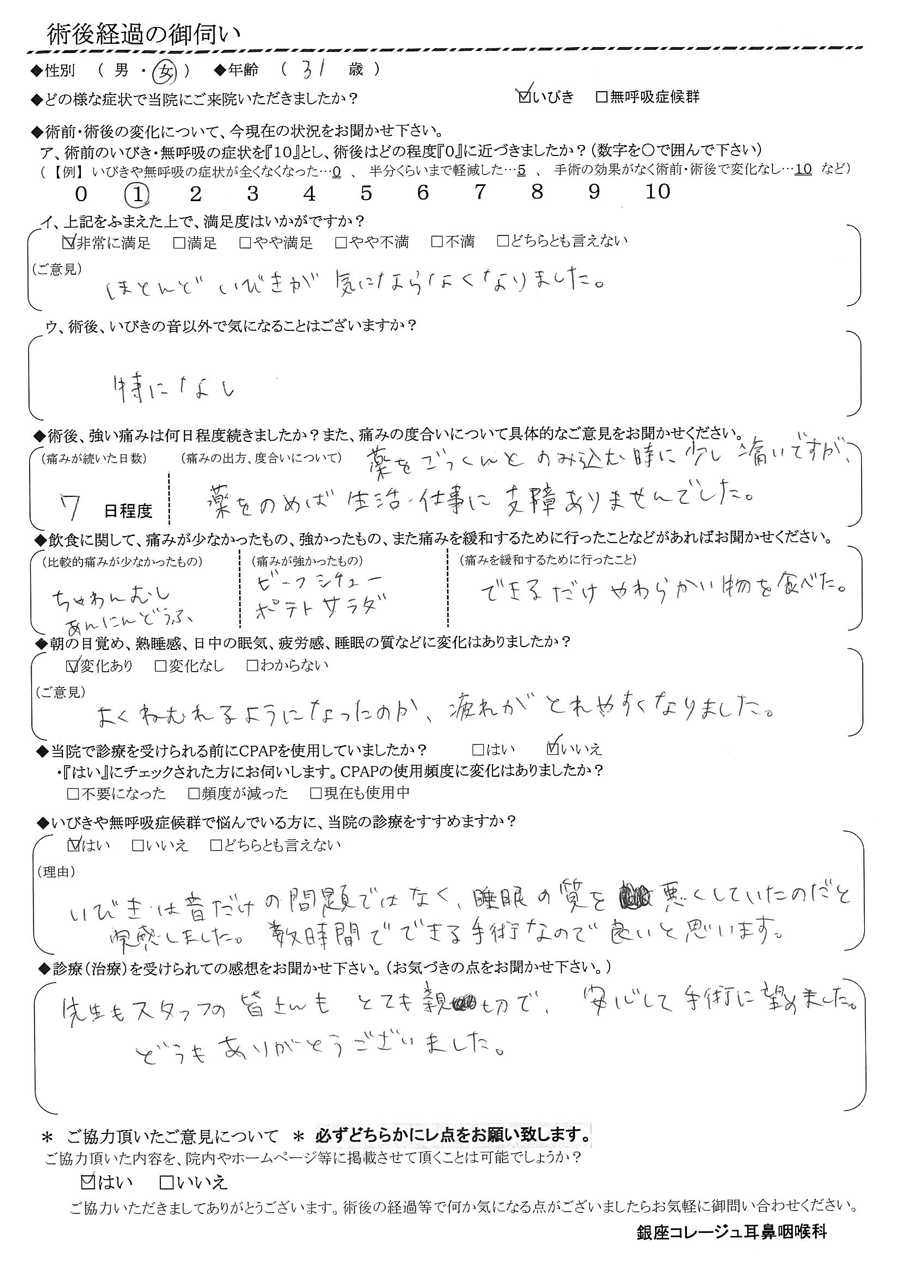 術後経過の御伺い
◆性別 ( 男 ・ 女 ) ◆年齢 ( 31 歳 )
◆どの様な症状で当院にご来院いただきましたか? ☑いびき □無呼吸症候群
◆術前・術後の変化について、今現在の状況をお聞かせ下さい。
ア、術前のいびき・無呼吸の症状を『10』とし、術後はどの程度『0』に近づきましたか?(数字を〇で囲んで下さい)
(【例】いびきや無呼吸の症状が全くなくなった…0 、 半分くらいまで軽減した…5 、 手術の効果がなく術前・術後で変化なし…10 など)
0 1 2 3 4 5 6 7 8 9 10
イ、上記をふまえた上で、満足度はいかがですか?
☑非常に満足 □満足 □やや満足 □やや不満 □不満 □どちらとも言えない
(ご意見)
ほとんど いびきが 気にならなくなりました。
ウ、術後、いびきの音以外で気になることはございますか?
特になし
◆術後、強い痛みは何日程度続きましたか?また、痛みの度合いについて具体的なご意見をお聞かせください。
(痛みが続いた日数) (痛みの出方、度合いについて) 薬をごっくんと のみ込む時に少し痛いですが、
7 日程度 薬をのめば 生活・仕事に 支障ありませんでした。
◆飲食に関して、痛みが少なかったもの、強かったもの、また痛みを緩和するために行ったことなどがあればお聞かせください。
(比較的痛みが少なかったもの) (痛みが強かったもの) (痛みを緩和するために行ったこと)
ちゃわんむし ビーフシチュー できるだけ やわらかい物を食べた。
あんにんどうふ、 ポテトサラダ
◆朝の目覚め、熟睡感、日中の眠気、疲労感、睡眠の質などに変化はありましたか?
☑変化あり □変化なし □わからない
(ご意見)
よくねむれるようになったのか、疲れが とれやすくなりました。
◆当院で診療を受けられる前にCPAPを使用していましたか? □はい ☑いいえ
・『はい』にチェックされた方にお伺いします。CPAPの使用頻度に変化はありましたか?
□不要になった □頻度が減った □現在も使用中
◆いびきや無呼吸症候群で悩んでいる方に、当院の診療をすすめますか?
☑はい □いいえ □どちらとも言えない
(理由)
いびきは音だけの問題ではなく、睡眠の質を 悪くしていたのだと
実感しました。 数時間でできる手術なので 良いと思います。
◆診療(治療)を受けられての感想をお聞かせ下さい。(お気づきの点をお聞かせ下さい。)
先生もスタッフの皆さんも とても親切で、 安心して手術に望めました。
どうもありがとうございました。
* ご協力頂いたご意見について * 必ずどちらかにレ点をお願い致します。
ご協力頂いた内容を、院内やホームページ等に掲載させて頂くことは可能でしょうか?
☑はい □いいえ
ご協力いただきましてありがとうございます。術後の経過等で何か気になる点がございましたらお気軽に御問い合わせください。
銀座コレージュ耳鼻咽喉科